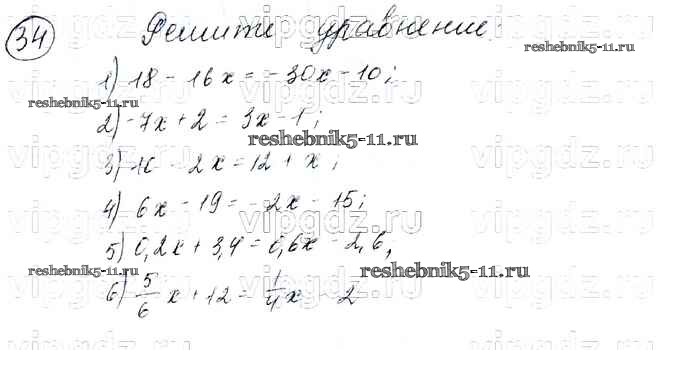 34 Решите уравнение:
1) 18 - 16x = -30x - 10;
2) -7x + 2 = 3x - 1;
3) 10 - 2x = 12 + x;
4) 6x - 19 = -2x - 15;
5) 0,2x + 3,4 = 0,6x - 2,6;
6) 5/6 x + 12 = 1/4 x - 2
vipgdz.ru
reshebnik5-11.ru
reshebnik5-11.ru
reshebnik5-11.ru
reshebnik5-11.ru
reshebnik5-11.ru